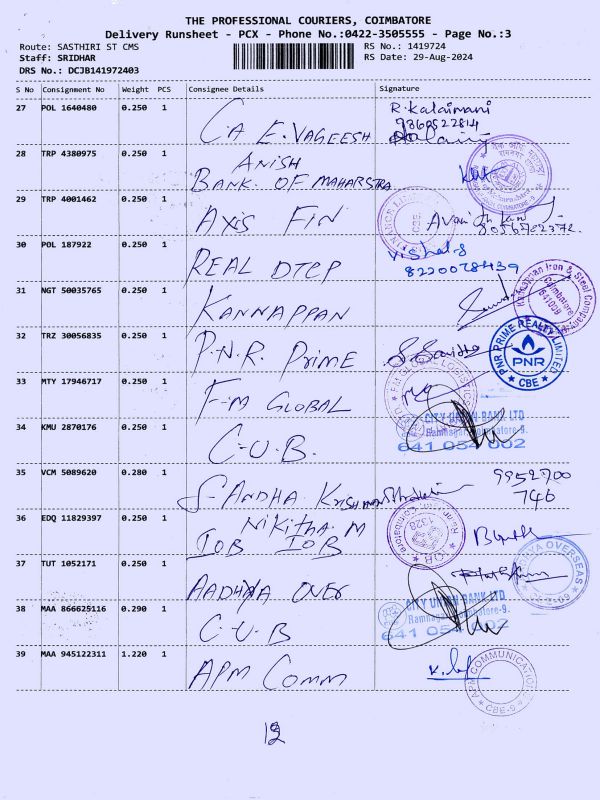 THE PROFESSIONAL COURIERS, COIMBATORE
Delivery Runsheet - PCX - Phone No.:0422-3505555 - Page No.:3
Route: SASTHIRI ST CMS
RS No.: 1419724
Staff: SRIDHAR
RS Date: 29-Aug-2024
DRS No.: DCJB141972403
S No Consignment No Weight PCS Consignee Details Signature
27 POL 1640480 0.250 1 C.A E.VAGEESH R.Kalaimani
28 TRP 4380975 0.250 1 ANISH
BANK OF MAHARSTRA
29 TRP 4001462 0.250 1 AXIS FIN
8056782372.
30 POL 187922 0.250 1 REAL DTCP Vishal.S
8220078439
31 NGT 50035765 0.250 1 KANNAPPAN
Kannappan Iron & Steel Company
Coimbatore
641009
32 TRZ 30056835 0.250 1 P.N.R. PRIME
PNR PRIME REALTY LIMITED
PNR
* CBE *
33 MTY 17946717 0.250 1 F-M GLOBAL
34 KMU 2870176 0.250 1 C-U-B.
CITY UNION BANK LTD
Ramnagar, Coimbatore-9.
641 054 002
35 VCM 5089620 0.280 1 9952700
746
36 EDQ 11829397 0.250 1 NIKITHA.M
IOB IOB
1328
IOB
37 TUT 1052171 0.250 1 AADHYA OVER
OVERSEAS
38 MAA 866625116 0.290 1 C-U-B
CITY UNION BANK LTD
Ramnagar, Coimbatore-9.
641 054 002
39 MAA 945122311 1.220 1 APM Comm
APM COMMUNICATIONS
CBE-9